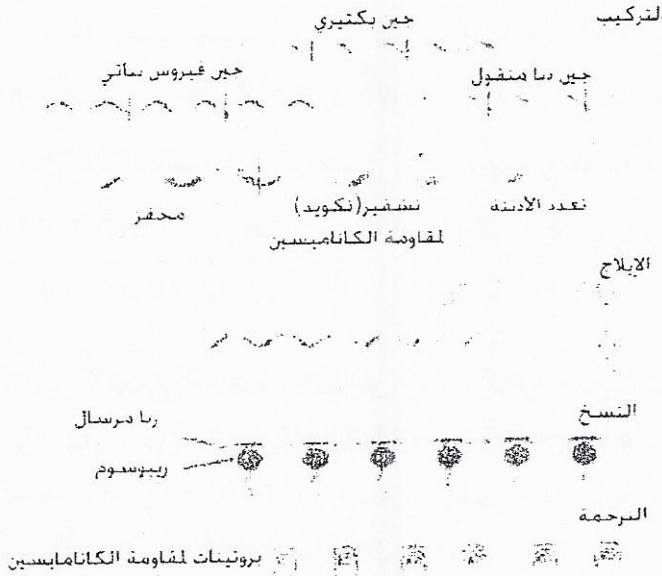 التركيب
جين بكتيري
جين فيروس نباتي
جين دنا منقول
محفز
تشفير(تكويد)
لمقاومة الكاناميسين
تعدد الأدينة
الإيلاج
النسخ
رنا مرسال
ريبوسوم
الترجمة
بروتينات لمقاومة الكانامايسين